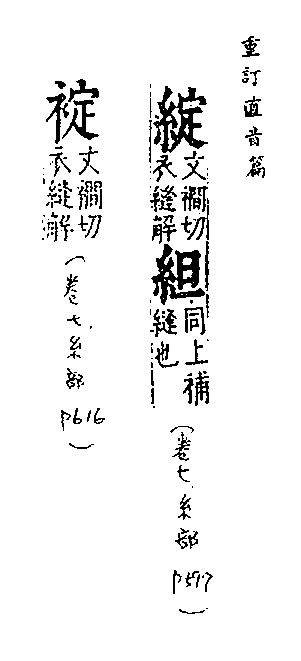 重訂直音篇
綻文襉切衣縫解組同上補縫也(卷七.糸部 p597)
袯丈襉切衣縫解(卷七.糸部 p616)